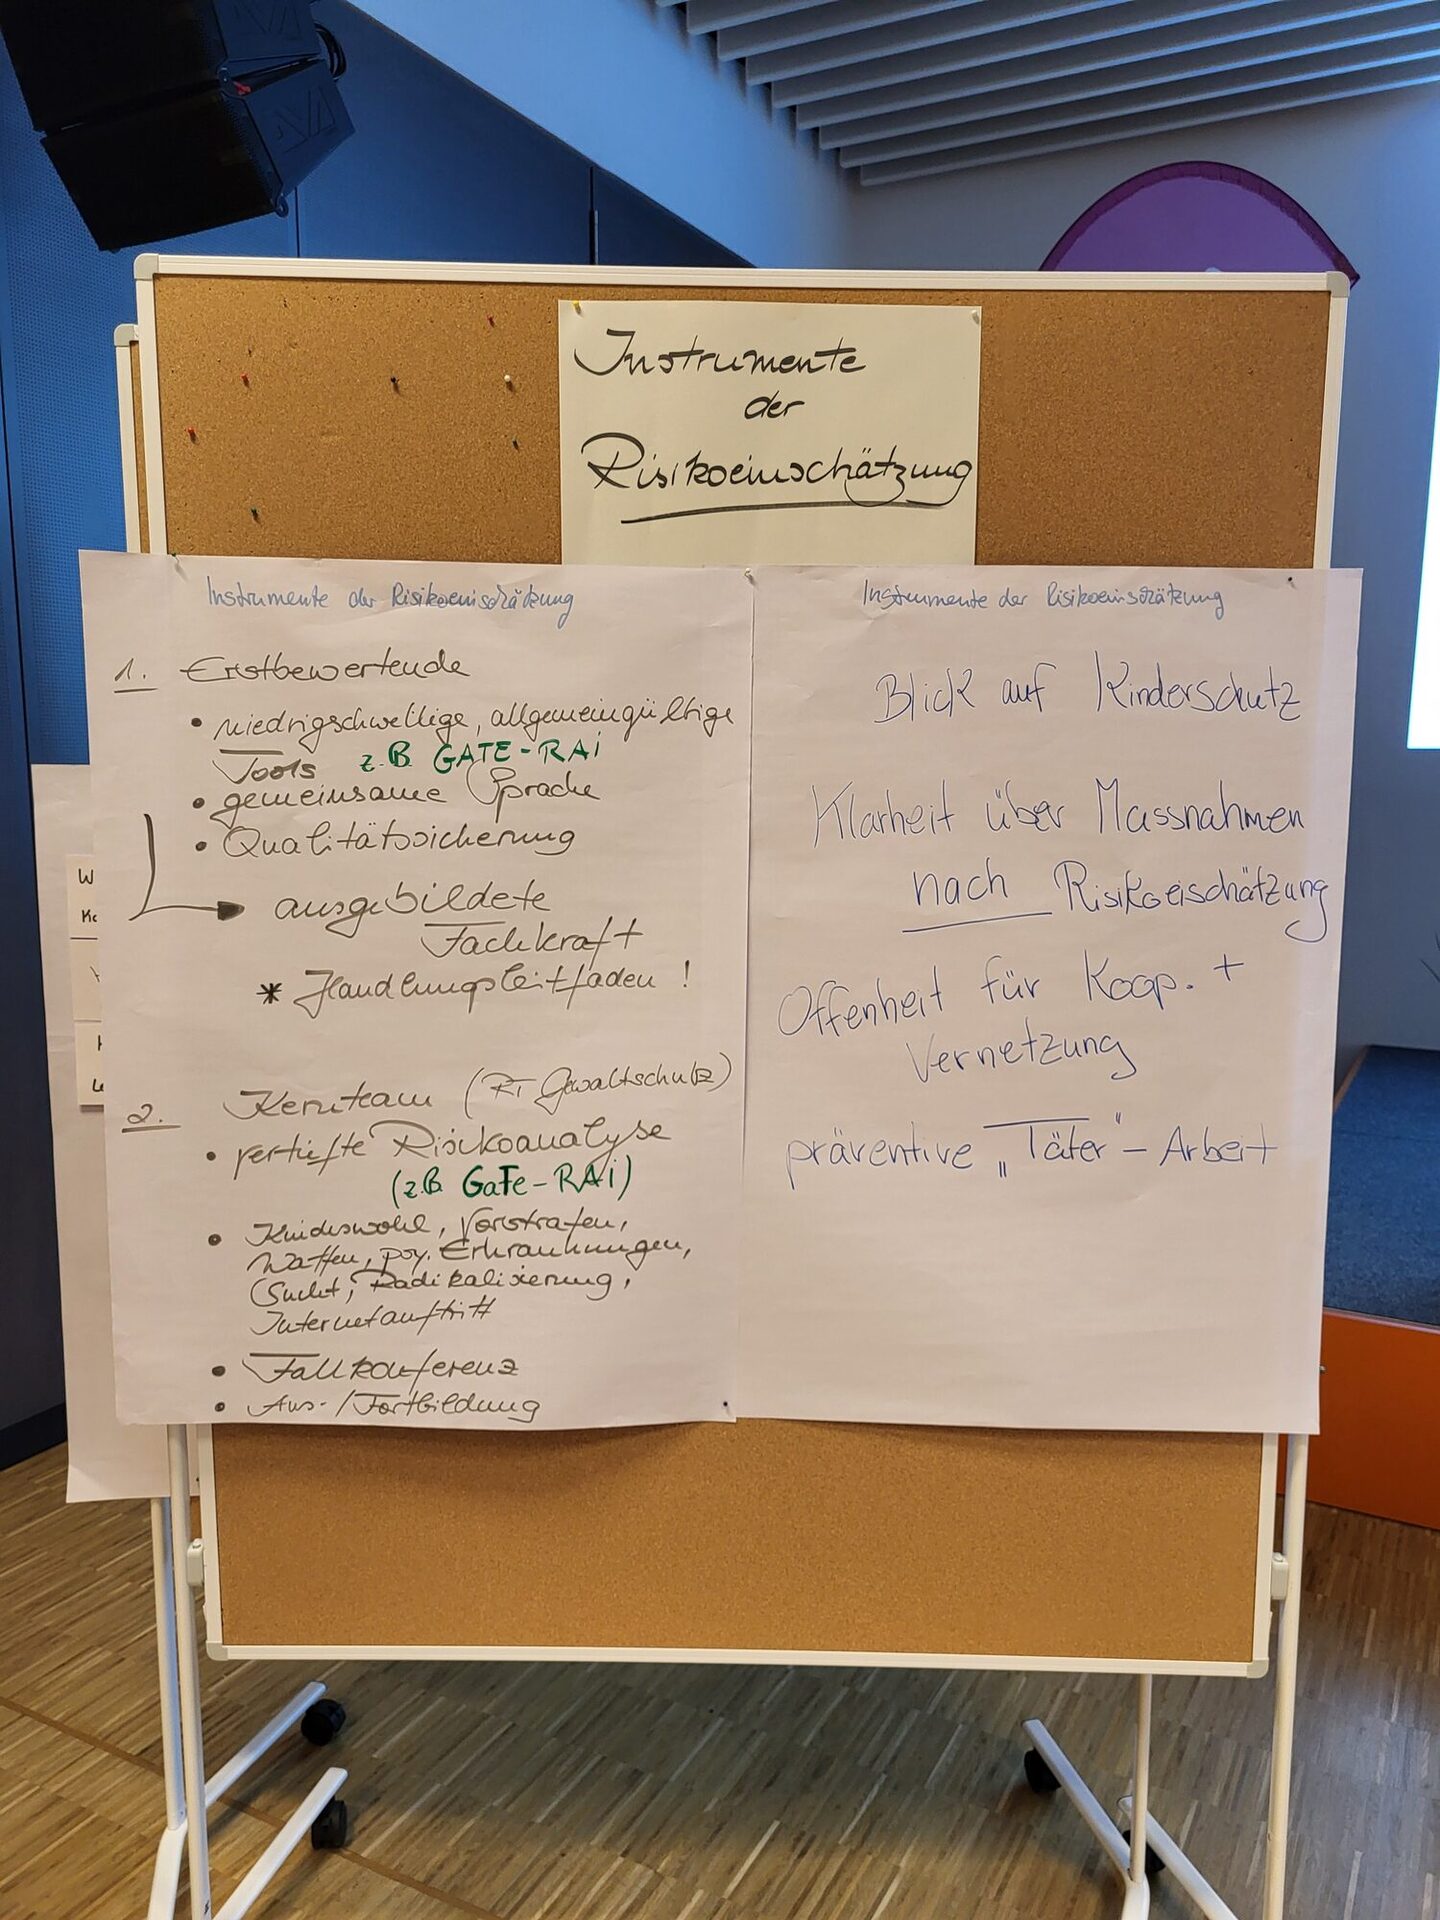 Instrumente
der
Risikoeinschätzung
Instrumente der Risikoeinschätzung
1. Erstbewertende
• niedrigschwellige, allgemeingültige
Tools z.B. GATE-RAi
• gemeinsame Sprache
• Qualitätssicherung
ausgebildete
Fachkraft
* Handlungsleitfaden !
2. Kernteam (RT Gewaltschutz)
• vertiefte Risikoanalyse
(z.B. GaTe-RAi)
• Kindeswohl, Vorstrafen,
Waffen, psy. Erkrankungen,
Sucht, Radikalisierung,
Internetauftritt
• Fallkonferenz
• Aus-/Fortbildung
Instrumente der Risikoeinschätzung
Blick auf Kinderschutz
Klarheit über Massnahmen
nach Risikoeischätzung
Offenheit für Koop. +
Vernetzung
präventive „Täter"-Arbeit
W